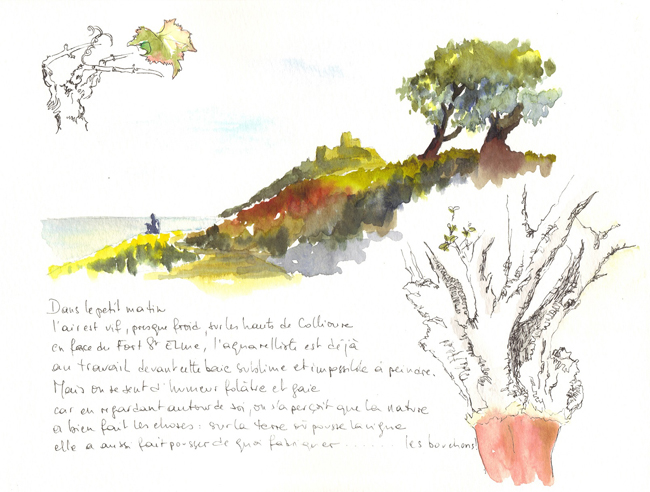 Dans le petit matin
l'air est vif, presque froid, sur les hauts de Collioure
en face du Fort St Elme, l'aquarelliste est déjà
au travail devant cette baie sublime et impossible à peindre.
Mais on se sent d'humeur folâtre et gaie
car en regardant autour de soi, on s'aperçoit que la nature
a bien fait les choses : sur la terre où pousse la vigne
elle a aussi fait pousser de quoi fabriquer ....... les bouchons